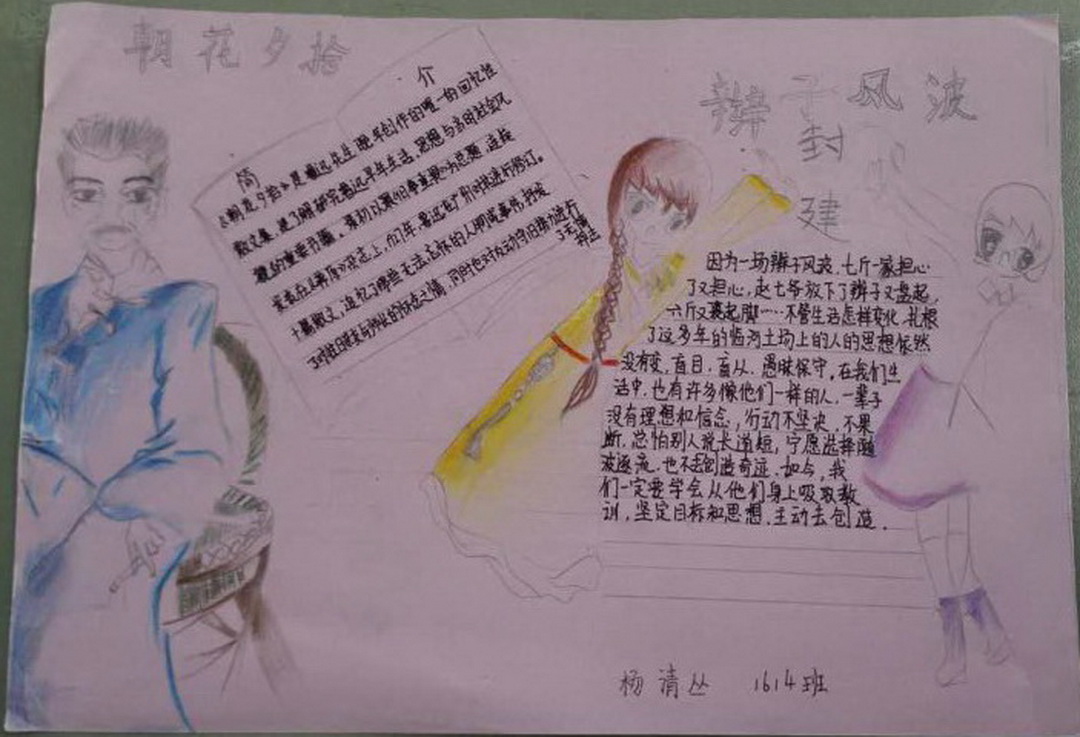 朝花夕拾
简介
《朝花夕拾》是鲁迅先生晚年创作的唯一的回忆性
散文集,是了解研究鲁迅早年生活、思想与当时社会风
貌的重要书籍。最初以《旧事重提》为总题,连接
发表在《莽原》杂志上,
十篇散文,追忆了那些无法忘怀的人
辫子风波
封
建
因为一场辫子风波,七斤一家担心
了又担心,赵七爷放下了辫子又盘起,
六斤又裹起脚……不管生活怎样变化,扎根
了这多年的临河土场上的人的思想依然
没有变,盲目、盲从、愚昧保守。在我们生
活中,也有许多像他们一样的人,一辈子
没有理想和信念,行动不坚决,不果
断,总怕别人说长道短,宁愿选择随
波逐流,也不去创造奇迹。如与,我
们一定要学会从他们身上吸取教
训,坚定目标和思想,主动去创造.
杨清丛 1614班